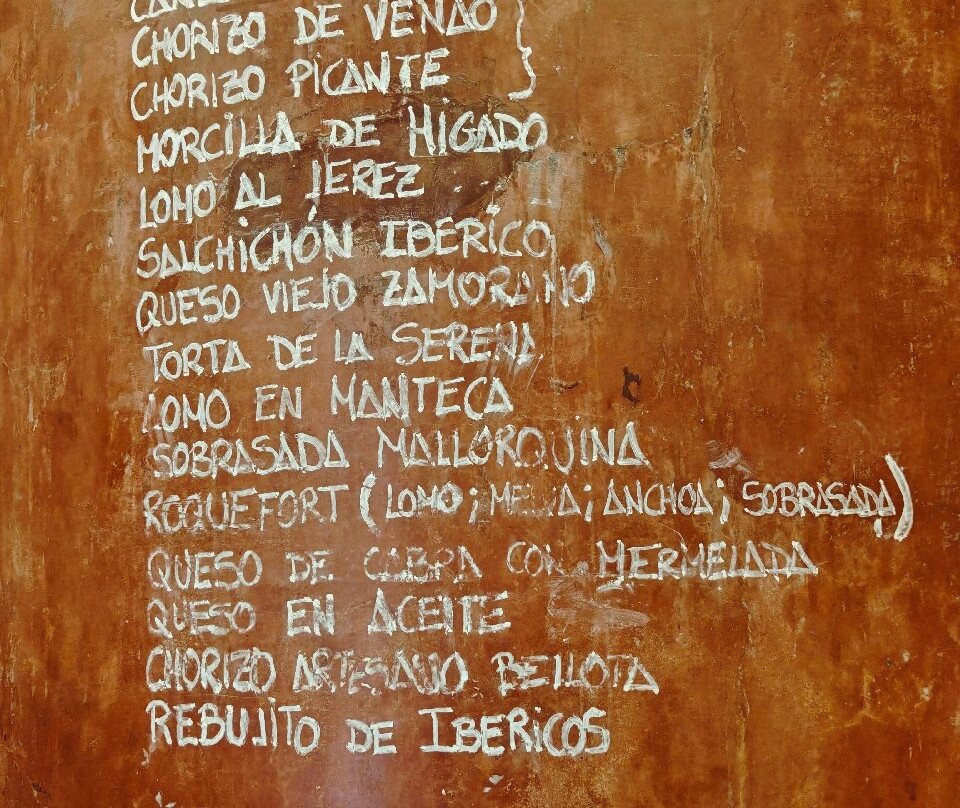 CHORIZO DE VENAO }
CHORIZO PICANTE
MORCILLA DE HIGADO
LOMO AL JEREZ ...
SALCHICHÓN IBERICO
QUESO VIEJO ZAMORANO
TORTA DE LA SERENA
LOMO EN MANTECA
SOBRASADA MALLORQUINA
ROQUEFORT (LOMO; ; ANCHOA; SOBRASADA)
QUESO DE CABRA CON MERMELADA
QUESO EN ACEITE
CHORIZO ARTESANO BELLOTA
REBUJITO DE IBERICOS